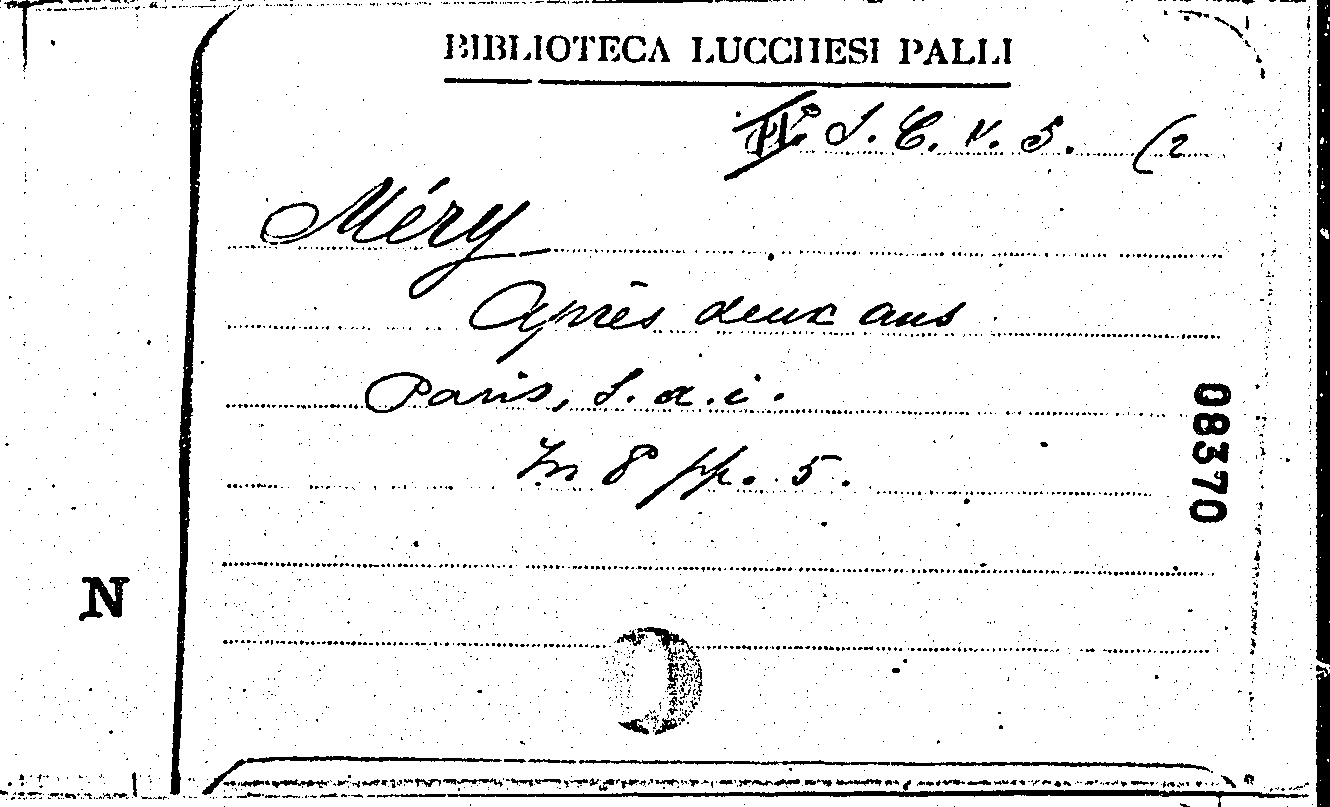 BIBLIOTECA LUCCHESI PALLI
S. C. V. 5. (2
Méry
Après deux ans
Paris, S. a. i.
In 8° pp. 5.
08370
N